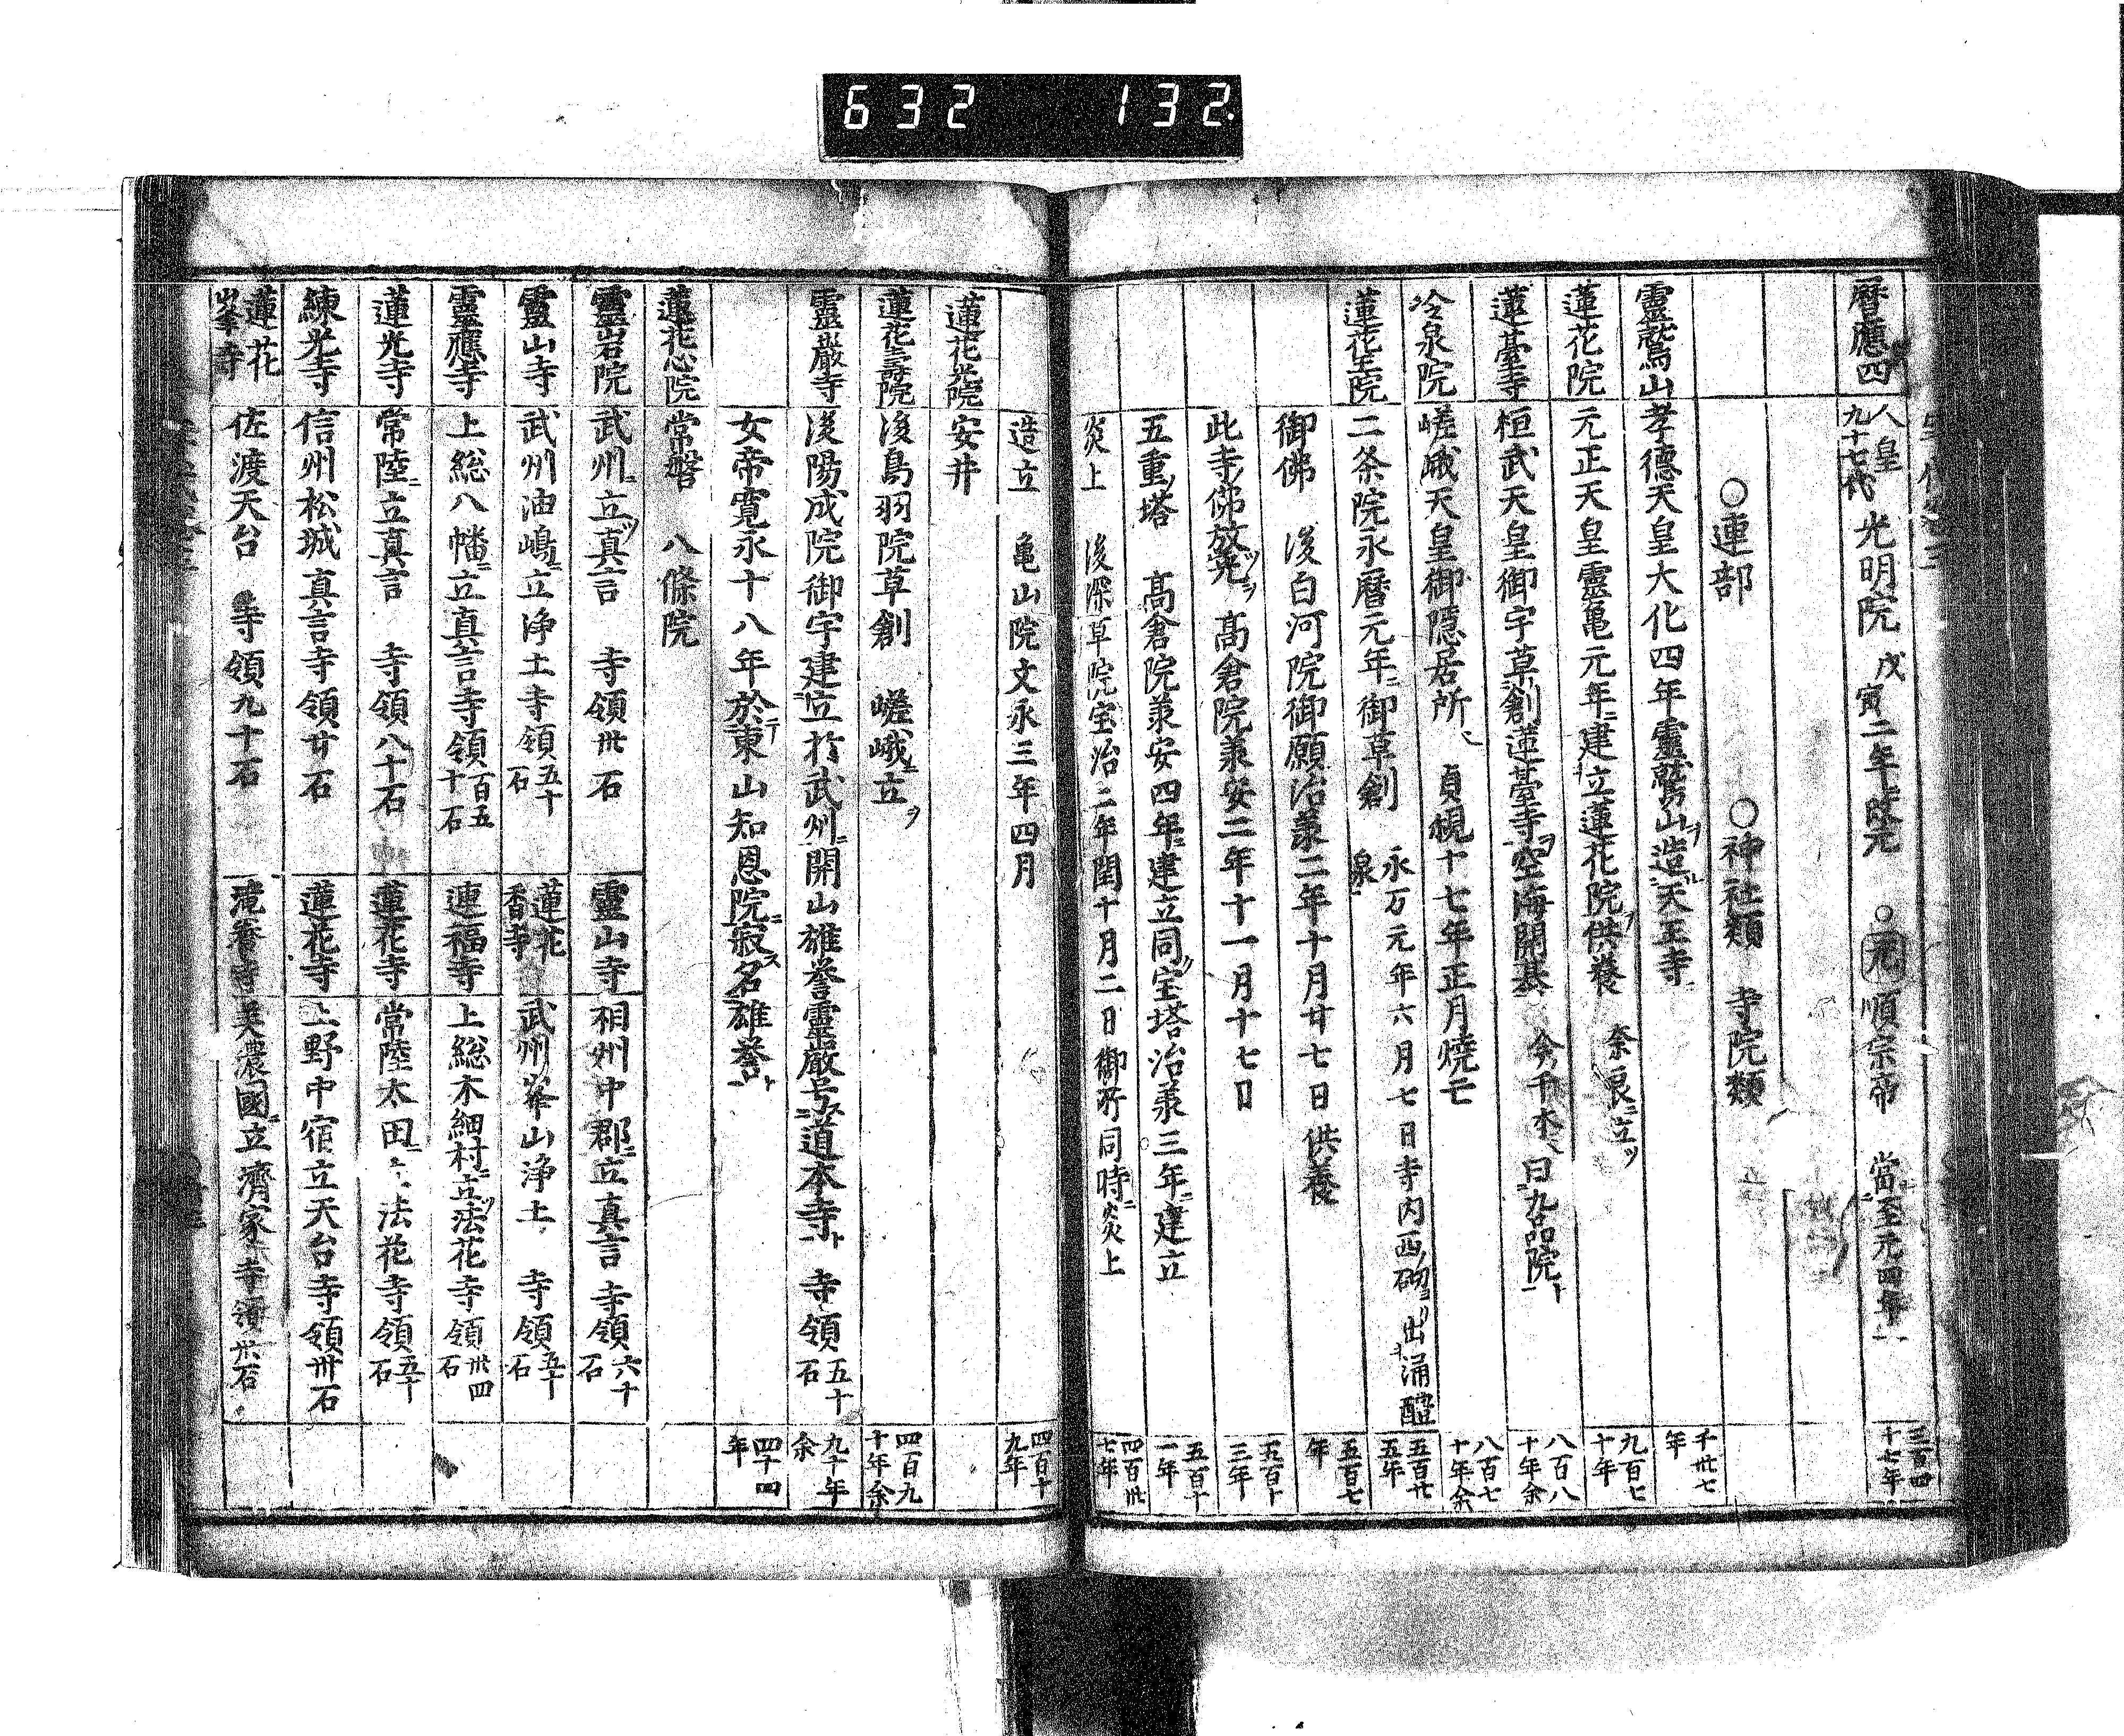 632 132
暦應四 人皇九十七代 光明院 戊寅二年改元 ○元 順宗帝 當至元四年 三百四十七年
○連部 ○神社類 寺院類
靈鷲山 孝德天皇大化四年靈鷲山ヲ造ル天王寺 千卅七年
蓮花院 元正天皇靈亀元年ニ建立蓮花院供養 奈良ニ立ツ 九百七十年
蓮臺寺 桓武天皇御宇草創蓮臺寺ヲ空海開基 今千本 曰九品院ト 八百八十年余
冷泉院 嵯峨天皇御隠居所 貞観十七年正月焼亡 八百七十年余
蓮花王院 二条院永暦元年ニ御草創 永万元年六月七日寺内西砌ニ出涌醴泉 五百廿五年
御佛 後白河院御願治承二年十月廿七日供養 五百七年
此寺佛放光ヲ 高倉院承安二年十一月十七日 五百十三年
五重塔 高倉院承安四年ニ建立同宝塔治承三年ニ建立 五百十一年
炎上 後深草院宝治二年閏十月二日御所同時ニ炎上 四百卅七年
造立 亀山院文永三年四月 四百十九年
蓮花光院 安井
蓮花壽院 後鳥羽院草創 嵯峨ニ立ツ 四百九十年余
靈嚴寺 後陽成院御宇建立於武州ニ開山雄誉靈嚴号道本寺ト 寺領五十石 九十年余
女帝寛永十八年於東山知恩院ニ寂ス名雄誉ト 四十四年
蓮花心院 常磐 八條院
靈岩院 武州ニ立ツ真言 寺領卅石 靈山寺 相州中郡ニ立真言 寺領六十石
靈山寺 武州油嶋ニ立浄土寺領五十石 蓮花香寺 武州峯山浄土 寺領五十石
靈應寺 上総八幡ニ立真言寺領百五十石 連福寺 上総木細村ニ立ツ法花寺領卅四石
蓮光寺 常陸ニ立真言 寺領八十石 蓮花寺 常陸太田ニ立法花寺領五十石
練光寺 信州松城真言寺領廿石 蓮花寺 上野中宿立天台寺領卅石
蓮花峯寺 佐渡天台 寺領九十石 養寺 美濃國ニ立濟家寺領卅石